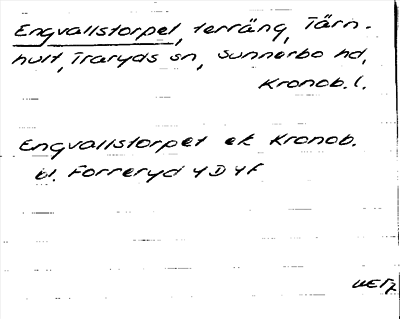 Engvallstorpet, terräng, Tärn-
hult, Traryds sn, Sunnerbo hd,
Kronob. l.
Engvallstorpet ek Kronob.
bl. Forreryd 4D4f